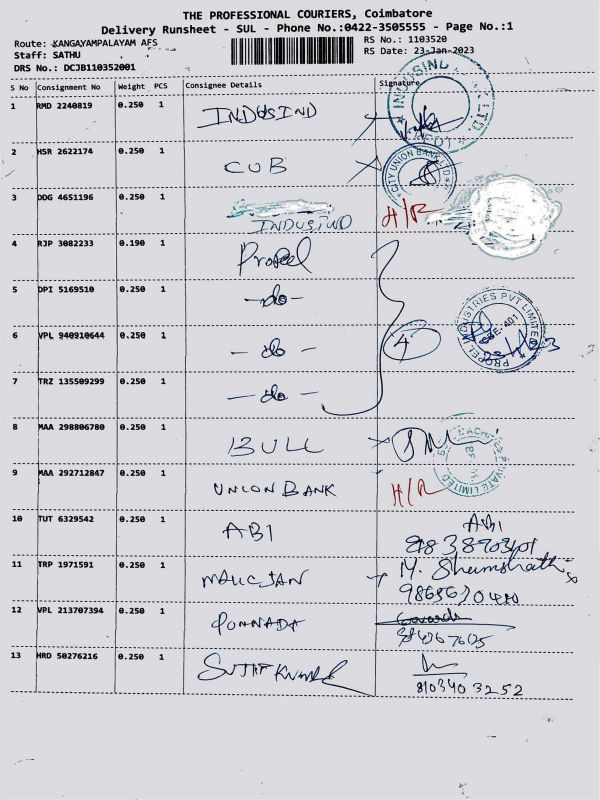 THE PROFESSIONAL COURIERS, Coimbatore
Delivery Runsheet - SUL - Phone No.:0422-3505555 - Page No.:1
Route: KANGAYAMPALAYAM AFS
RS No.: 1103520
Staff: SATHU
RS Date: 23-Jan-2023
DRS No.: DCJB110352001
S No Consignment No Weight PCS Consignee Details Signature
1 RMD 2240819 0.250 1 INDUSIND
2 HSR 2622174 0.250 1 CUB
CITY UNION BANK LTD
3 DDG 4651196 0.250 1 INDUSIND H/R
4 RJP 3082233 0.190 1 Propel
5 DPI 5169510 0.250 1 -do-
6 VPL 940910644 0.250 1 -do- 4
PROPEL INDUSTRIES PVT LIMITED
7 TRZ 135509299 0.250 1 -do-
8 MAA 298806780 0.250 1 BULL
PRIVATE LIMITED
9 MAA 292712847 0.250 1 UNION BANK H/R
10 TUT 6329542 0.250 1 ABI ABI
11 TRP 1971591 0.250 1
12 VPL 213707394 0.250 1 PONNADA
13 HRD 50276216 0.250 1
8103403252